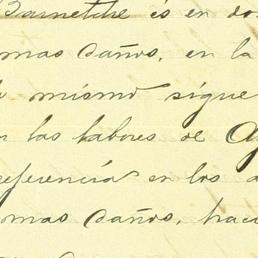 es en do
mas daños, en la
mismo sigue
las labores de
referencia en los a
mas daños, haci